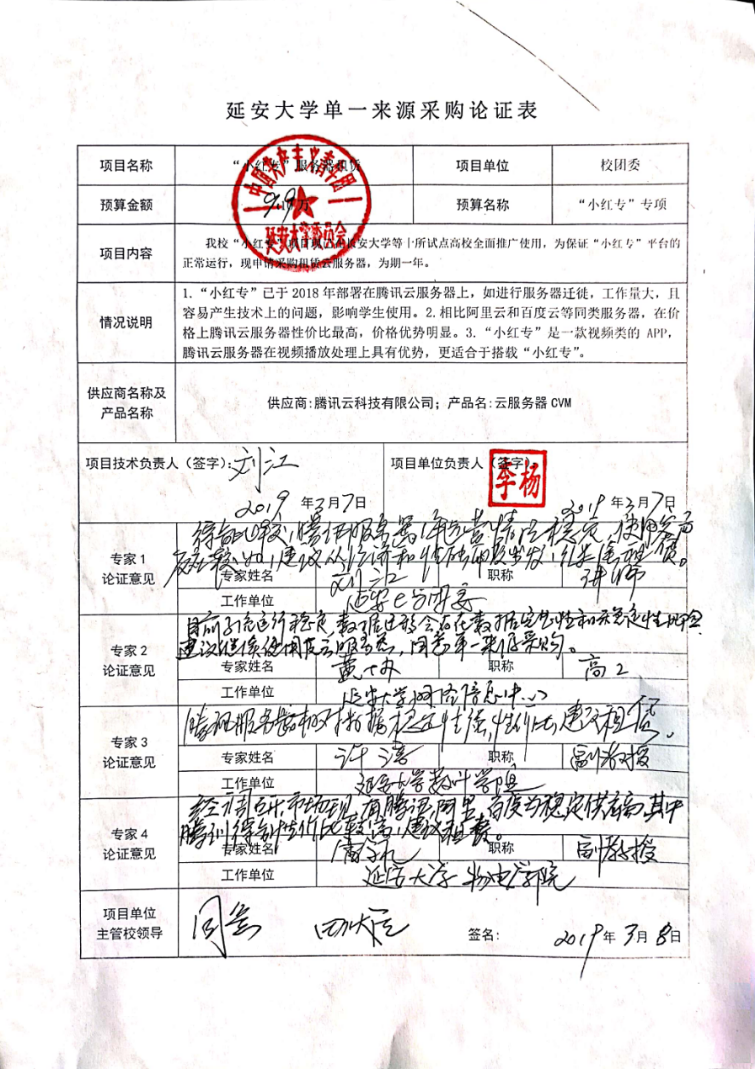 延安大学单一来源采购论证表
项目名称 “小红专”服务器租赁 项目单位 校团委
预算金额 9.9万 预算名称 “小红专”专项
项目内容 我校“小红专”项目现已在延安大学等十所试点高校全面推广使用，为保证“小红专”平台的
正常运行，现申请采购租赁云服务器，为期一年。
中国共产主义青年团
延安大学委员会
情况说明 1.“小红专”已于 2018 年部署在腾讯云服务器上，如进行服务器迁徙，工作量大，且
容易产生技术上的问题，影响学生使用。2.相比阿里云和百度云等同类服务器，在价
格上腾讯云服务器性价比最高，价格优势明显。3.“小红专”是一款视频类的 APP，
腾讯云服务器在视频播放处理上具有优势，更适合于搭载“小红专”。
供应商名称及
产品名称 供应商:腾讯云科技有限公司；产品名:云服务器 CVM
项目技术负责人（签字）: 刘江 项目单位负责人（签字）
李杨
2019 年 3 月 7 日 2019 年 3 月 7 日
专家 1
论证意见
专家姓名 职称 讲师
工作单位
专家 2
论证意见
目前系统运行稳定，数据迁移会存在数据完整性和
建议继续使用 云服务器，同意单一来源采购。
专家姓名 职称 高工
工作单位 延安大学网络信息中心
专家 3
论证意见
专家姓名 许淳 职称 副教授
工作单位 延安大学数计学院
专家 4
论证意见
经调研，市场现有腾讯、阿里、百度为稳定供应商，其中
腾讯 性价比较高，建议租赁。
专家姓名 职称 副教授
工作单位 延安大学物电学院
项目单位
主管校领导 同意 签名: 2019 年 3 月 8 日